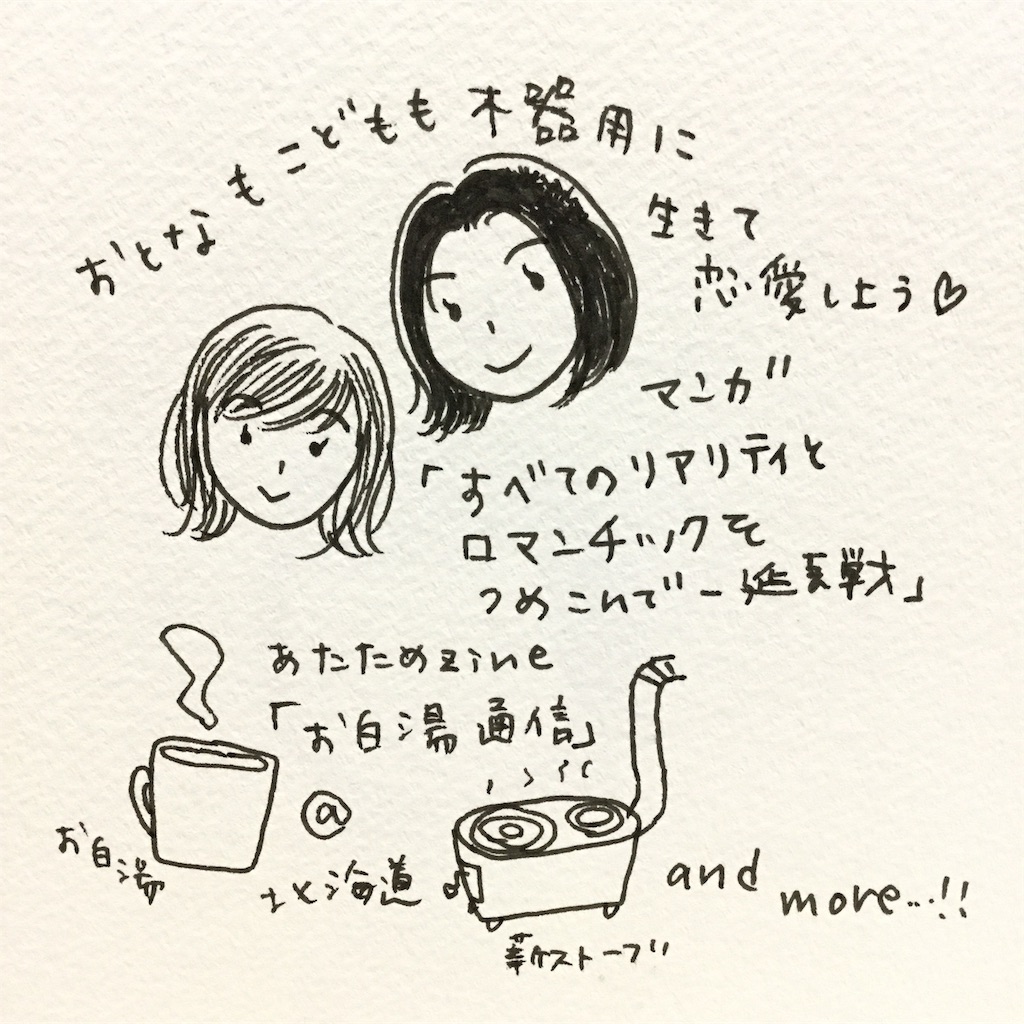 おとなもこどもも不器用に
生きて
恋愛しよう♡
マンガ
「すべてのリアリティと
ロマンチックを
つめこんでー延長戦」
あたためzine
「お白湯通信」
お白湯
@
北海道
薪ストーブ
and
more...!!